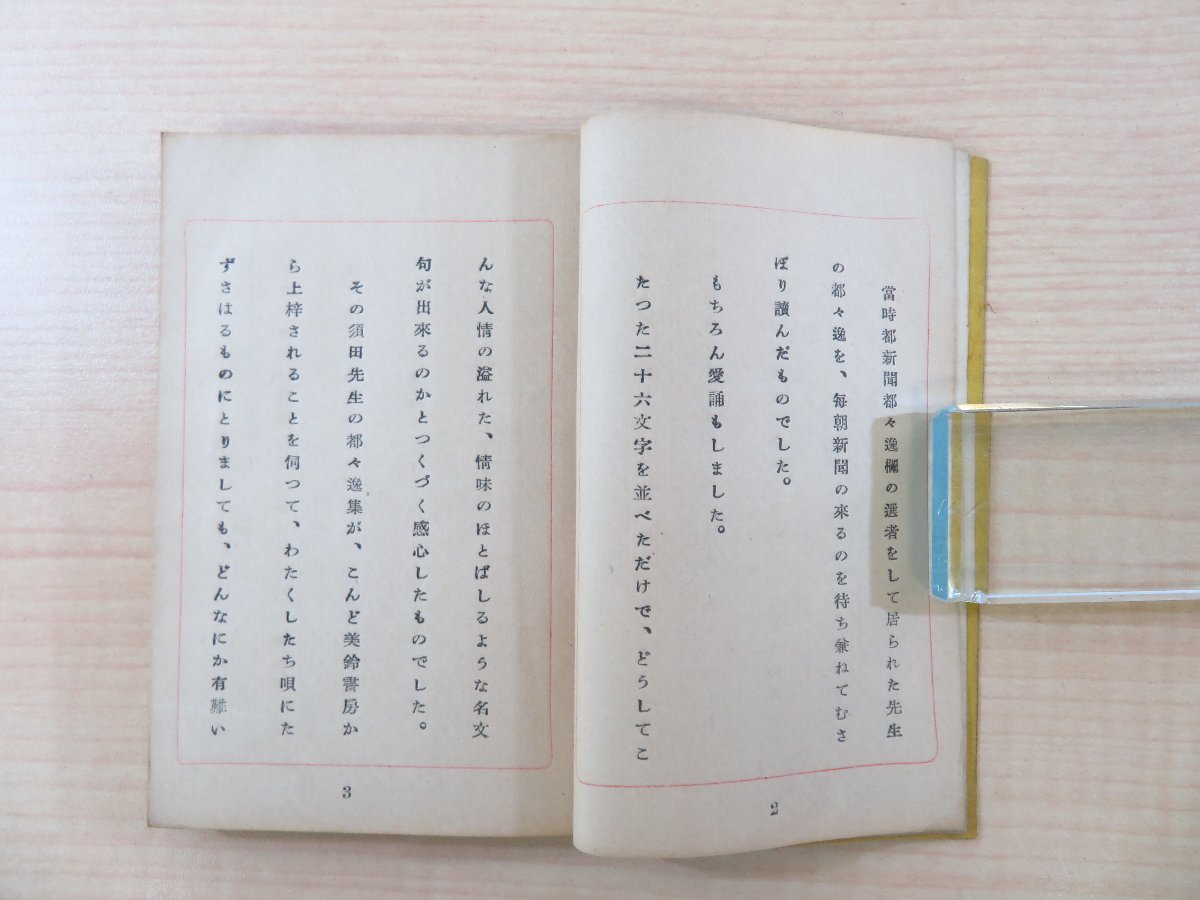 當時都新聞都々逸欄の選者をして居られた先生
の都々逸を、毎朝新聞の來るのを待ち兼ねてむさ
ぼり讀んだものでした。
もちろん愛誦もしました。
たつた二十六文字を並べただけで、どうしてこ
2
んな人情の溢れた、情味のほとばしるような名文
句が出來るのかとつくづく感心したものでした。
その須田先生の都々逸集が、こんど美鈴書房か
ら上梓されることを伺つて、わたくしたち唄にた
ずさはるものにとりましても、どんなにか有難い
3